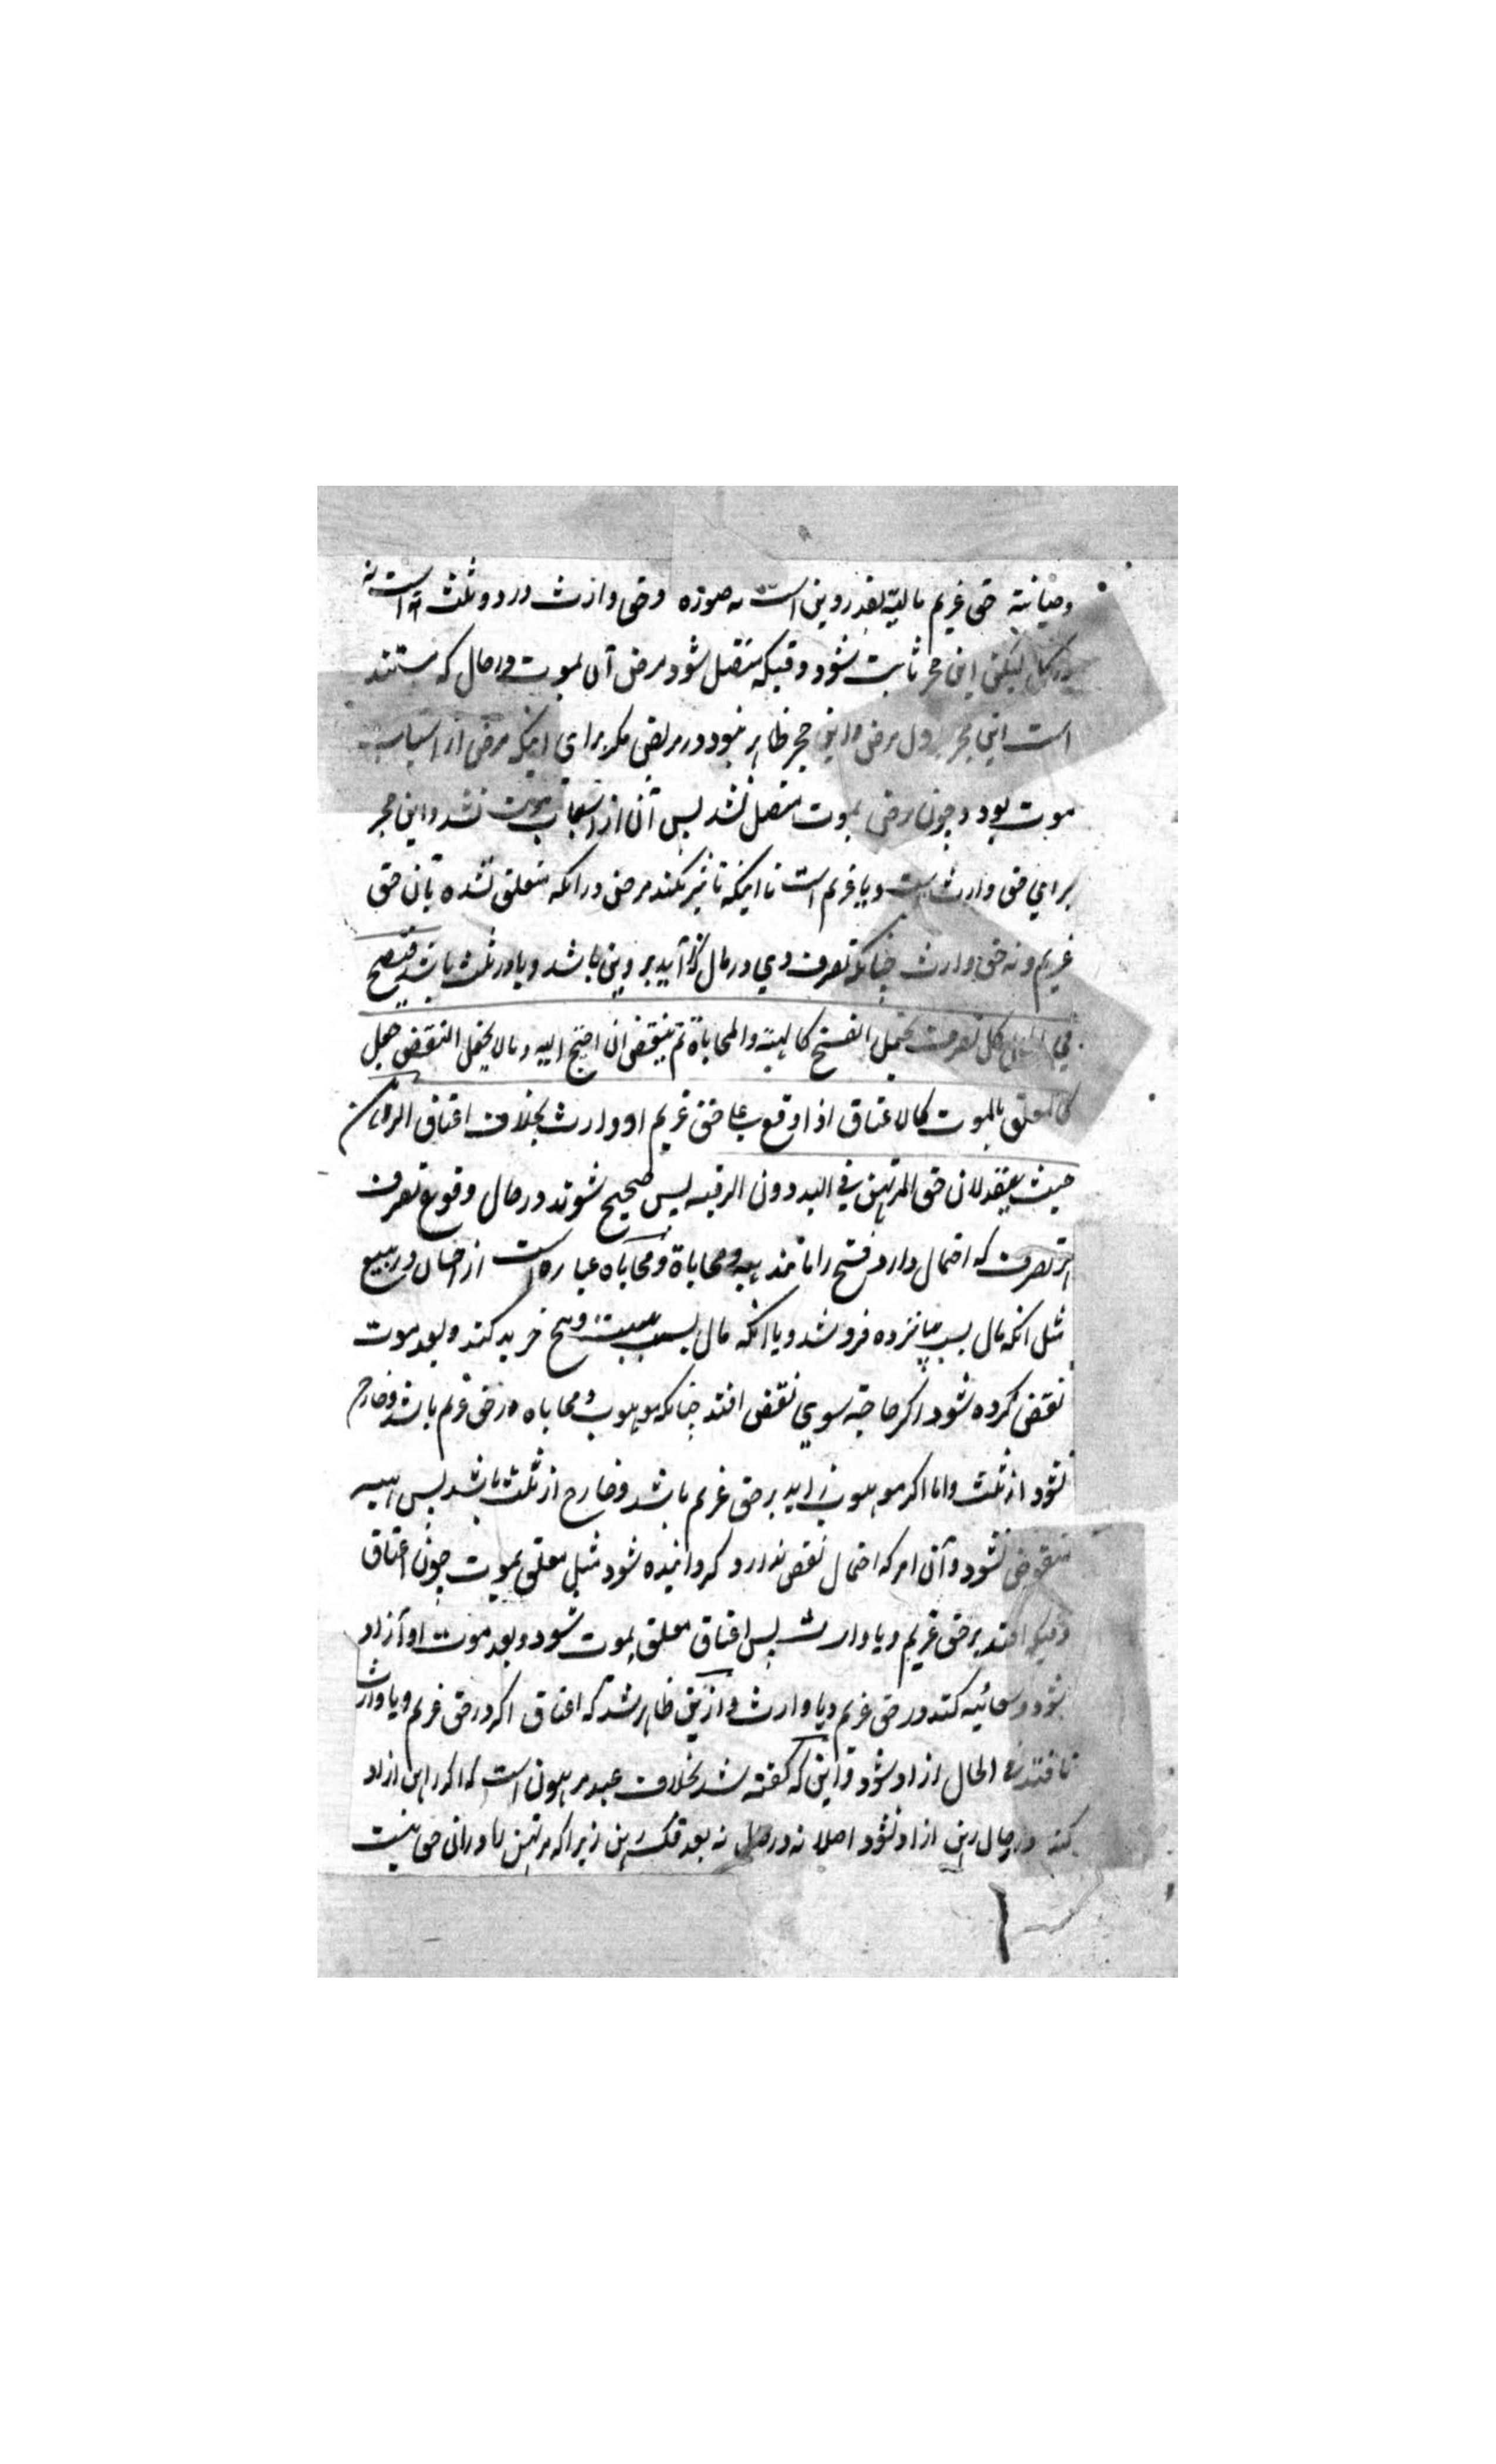 وصیانته حق غریم مالیة بقدر دین است نه صوره و حق وارث در دو ثلث است نه
لیکن این حجر ثابت شود وقتیکه متصل شود مرض آن بموت در حال که مستند
است این حجر باول مرض و این حجر ظاهر نبود در مریض مکر برای اینکه مرض از اسباب
موت بود و چون مرض بموت متصل نشد پس آن از اسباب موت نشد و این حجر
برای حق وارث است و یا غریم است تا اینکه تاثیر نکند مرض در انکه متعلق نشده بآن حق
غریم و نه حق وارث چنانکه تصرف وی در مال زاید بر دین باشد و یا در ثلث باشد فتصح
فی الحال کل تصرف یحتمل الفسخ کالهبة والمحاباة ثم ینتقض ان احتیج الیه وما لا یحتمل النقض جعل
کالمعلق بالموت کالاعتاق اذا وقع علی حق غریم او وارث بخلاف اعتاق الراهن
حیث ینفذ لان حق المرتهن فی الید دون الرقبه پس صحیح شوند در حال وقوع تصرف
هر تصرف که احتمال دارد فسخ را مانند هبه و محاباة و محاباه عباره است از احسان در بیع
مثل انکه مال بیست بپانزده فروشد و یا انکه مال بیست به بیست و پنج خرید کند و بعد موت
نقض کرده شود اکر حاجة سوی نقض افتد چنانکه موهوب و محاباه در حق غریم باشد و خارج
نشود از ثلث و اما اکر موهوب زاید بر حق غریم باشد و خارج از ثلث باشد پس هبه
منقوض نشود و آن امر که احتمال نقض ندارد کردانیده شود مثل معلق بموت چون اعتاق
وقتیکه افتد بر حق غریم و یا وارث پس اعتاق معلق بموت شود و بعد موت او آزاد
شود و سعائیه کند در حق غریم و یا وارث و ازین ظاهر شد که اعتاق اکر در حق غریم و یا وارث
نافتد فی الحال ازاد شود و این که کفته شد بخلاف عبد مرهون است که اکر راهن ازاد
کند در حال رهن ازاد نشود اصلا نه در حال نه بعد فک رهن زیرا که مرتهن را در آن حق نیست